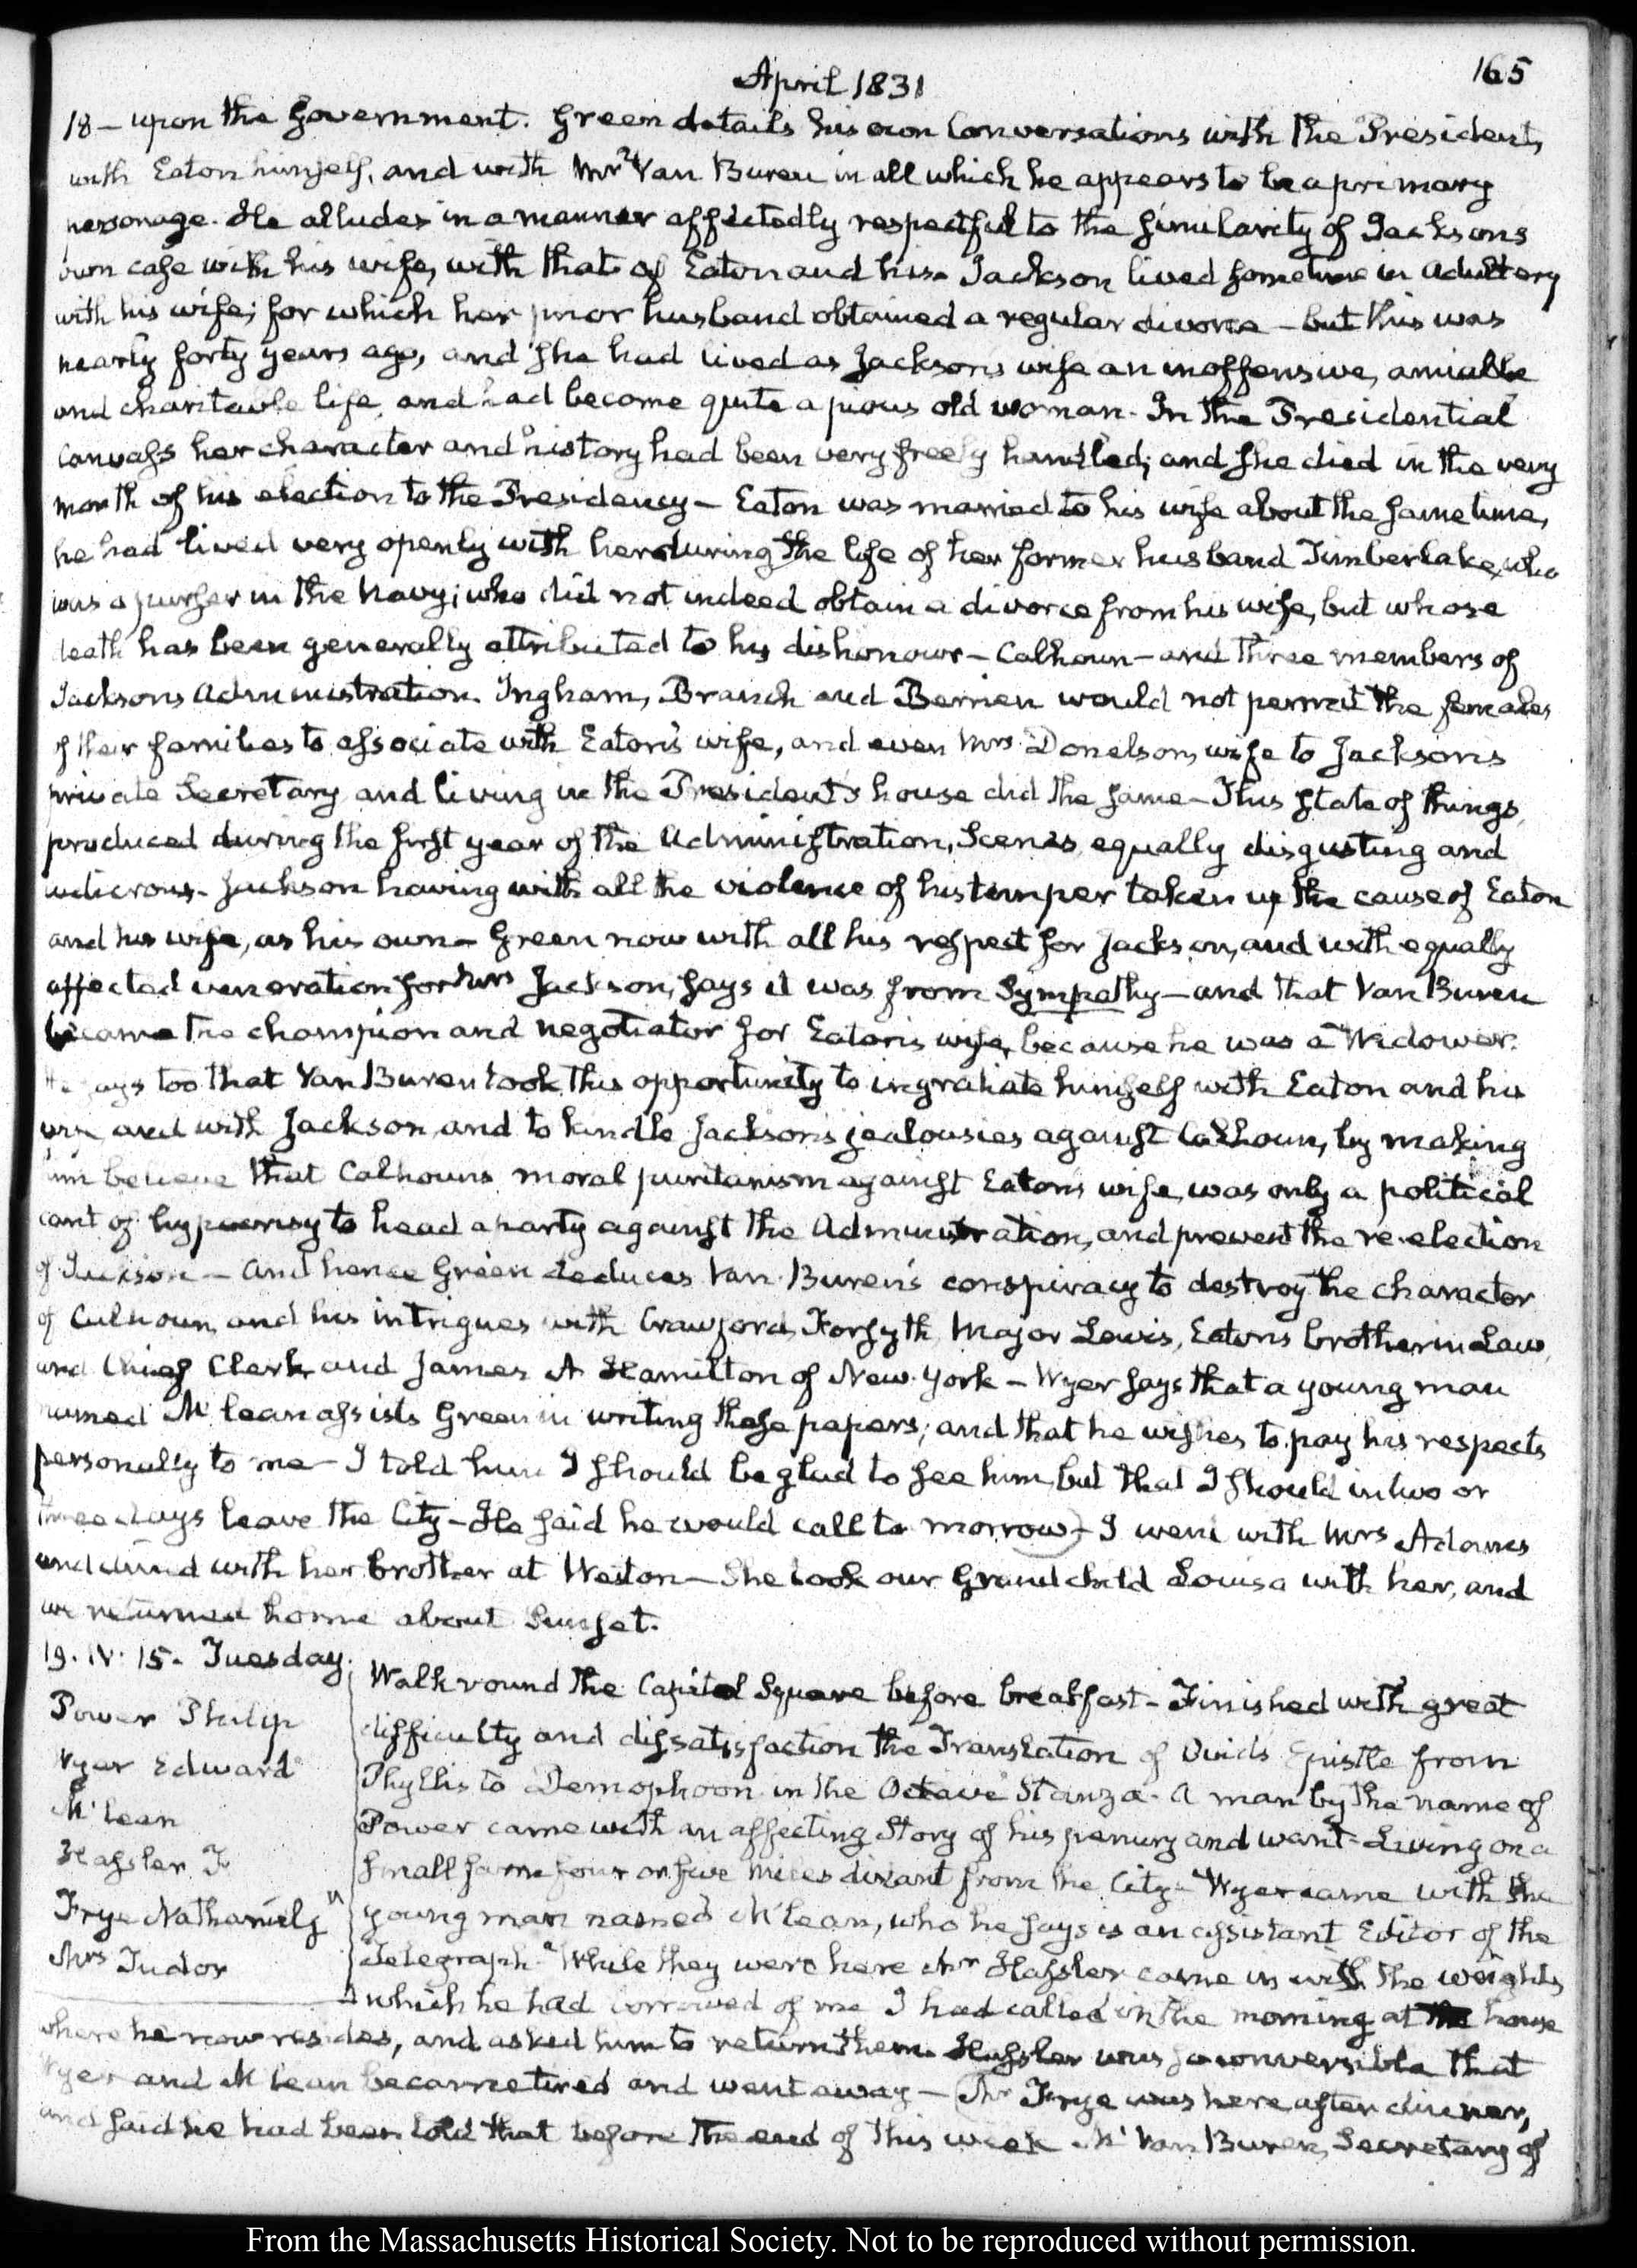 April 1831
165
18 — upon the Government. Green details his own Conversations with the President,
with Eaton himself, and with Mr Van Buren in all which he appears to be a primary
personage. He alludes in a manner affectedly respectful to the similarity of Jacksons
own case with his wife, with that of Eaton and his. Jackson lived sometime in adultery
with his wife; for which her prior husband obtained a regular divorce — but this was
nearly forty years ago, and she had lived as Jackson's wife an inoffensive, amiable
and charitable life, and had become quite a pious old woman. In the Presidential
Canvass her character and history had been very freely handled; and she died in the very
month of his election to the Presidency — Eaton was married to his wife about the same time,
he had lived very openly with her during the life of her former husband Timberlake, who
was a purser in the Navy; who did not indeed obtain a divorce from his wife, but whose
death has been generally attributed to his dishonour — Calhoun — and three members of
Jacksons Administration. Ingham, Branch and Berrien would not permit the females
of their families to associate with Eaton's wife, and even Mrs Donelson, wife to Jackson's
private Secretary and living in the President's house did the same — This state of things,
produced during the first year of the Administration, Scenes equally disgusting and
ludicrous — Jackson having with all the violence of his temper taken up the cause of Eaton
and his wife, as his own — Green now with all his respect for Jackson, and with equally
affected veneration for Mrs Jackson, says it was from Sympathy — and that Van Buren
became the champion and negotiator for Eaton's wife, because he was a Widower.
He says too that Van Buren took this opportunity to ingratiate himself with Eaton and his
wife and with Jackson, and to kindle Jackson's jealousies against Calhoun, by making
him believe that Calhouns moral puritanism against Eatons wife, was only a political
cant of hypocrisy to head a party against the Administration, and prevent the re-election
of Jackson — And hence Green deduces Van Buren's conspiracy to destroy the character
of Calhoun, and his intrigues with Crawford, Forsyth, Major Lewis, Eatons brother in Law,
and Chief Clerk and James A Hamilton of New-York — Wyer says that a young man
named McLean assists Green in writing these papers; and that he wishes to pay his respects
personally to me — I told him I should be glad to see him, but that I should in two or
three days leave the City — He said he would call to morrow — I went with Mrs Adams
and dined with her brother at Weston — She took our Grand child Louisa with her, and
we returned home about Sunset.
19. IV: 15. Tuesday.
Power Philip
Wyer Edward
McLean
Hassler F
Frye Nathaniel Jr
Mrs Tudor
Walk round the Capitol Square before breakfast — Finished with great
difficulty and dissatisfaction the Translation of Ovid's Epistle from
Phyllis to Demophoon in the Octave Stanza. A man by the name of
Power came with an affecting Story of his penury and want — Living on a
small farm four or five miles distant from the City — Wyer came with the
young man named McLean, who he says is an assistant Editor of the
Telegraph — While they were here Mr Hassler came in with the weights,
which he had borrowed of me I had called in the morning at the house
where he now resides, and asked him to return them. Hassler was so conversible that
Wyer and McLean became tired and went away — Mr Frye was here after dinner,
and said he had been told that before the end of this week Mr Van Buren, Secretary of
From the Massachusetts Historical Society. Not to be reproduced without permission.